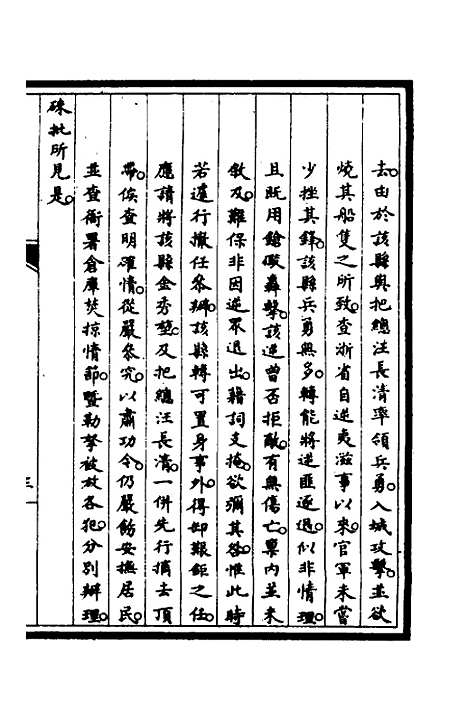 去。由於該縣與把總汪長清率領兵勇。入城攻擊。並欲
燒其船隻之所致。查浙省自逆夷滋事以來。官軍未嘗
少挫其鋒。該縣兵勇無多。轉能將逆匪逐退。似非情理。
且既用鎗礮轟擊。該逆曾否拒敵。有無傷亡。稟內並未
敘及。難保非因逆眾退出。藉詞支掩。欲彌其咎。惟此時
若遽行撤任參辦。該縣轉可置身事外。得卸艱鉅之任。
應請將該縣金秀堃。及把總汪長清。一併先行摘去頂
帶。俟查明確情。從嚴參究。以肅功令。仍嚴飭安撫居民。
並查衙署倉庫焚掠情節。暨勒拏被放各犯。分別辦理。
硃批所見是。
三